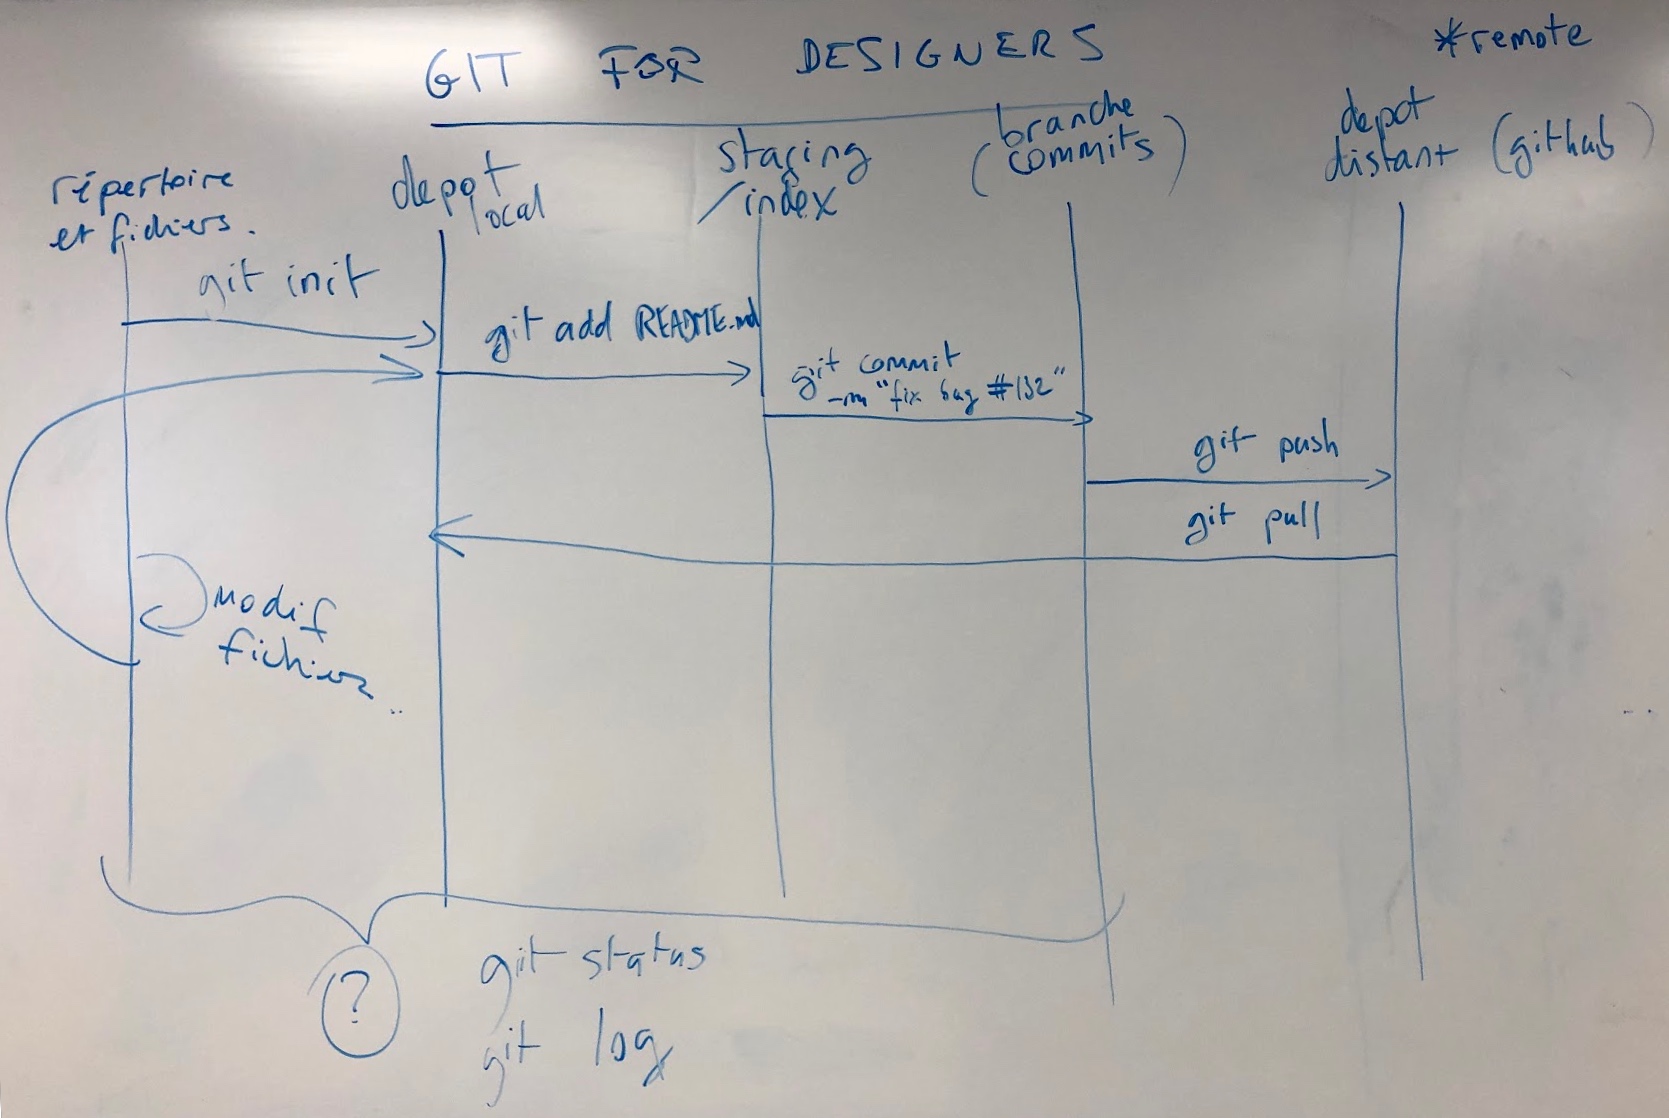 GIT FOR DESIGNERS
*remote
répertoire
et fichiers.
depot
local
staging
/index
branche
(commits)
depot
distant (github)
git init
git add README.md
git commit
-m "fix bug #132"
git push
git pull
modif
fichiers
..
?
git status
git log